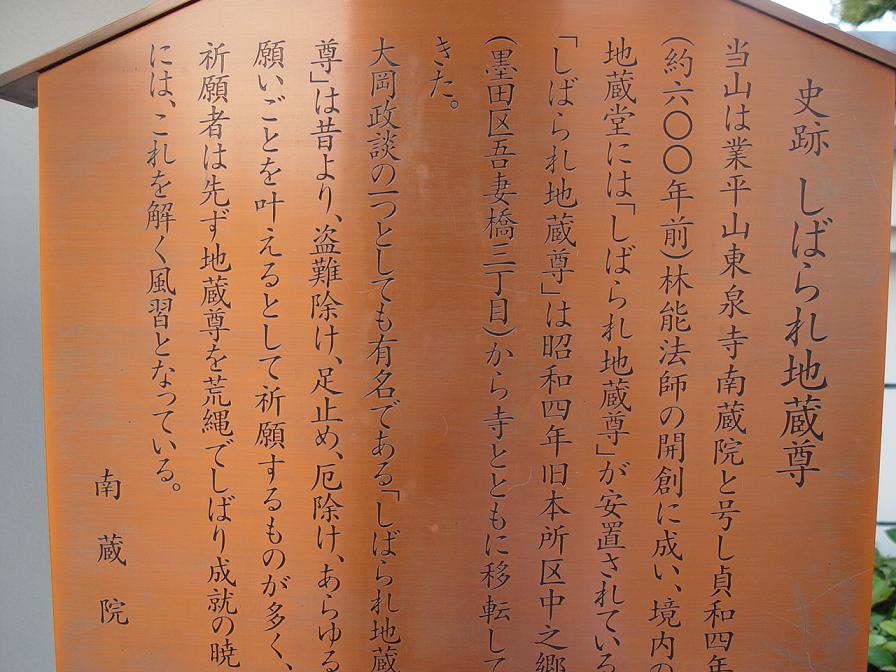 史跡 しばられ地蔵尊
当山は業平山東泉寺南蔵院と号し貞和四年
(約六〇〇年前)林能法師の開創に成い、境内の
地蔵堂には「しばられ地蔵尊」が安置されている
「しばられ地蔵尊」は昭和四年旧本所区中之郷
(墨田区吾妻橋三丁目)から寺とともに移転して
きた。
大岡政談の一つとしても有名である「しばられ地蔵
尊」は昔より、盗難除け、足止め、厄除け、あらゆる
願いごとを叶えるとして祈願するものが多く、
祈願者は先ず地蔵尊を荒縄でしばり成就の暁
には、これを解く風習となっている。
南蔵院